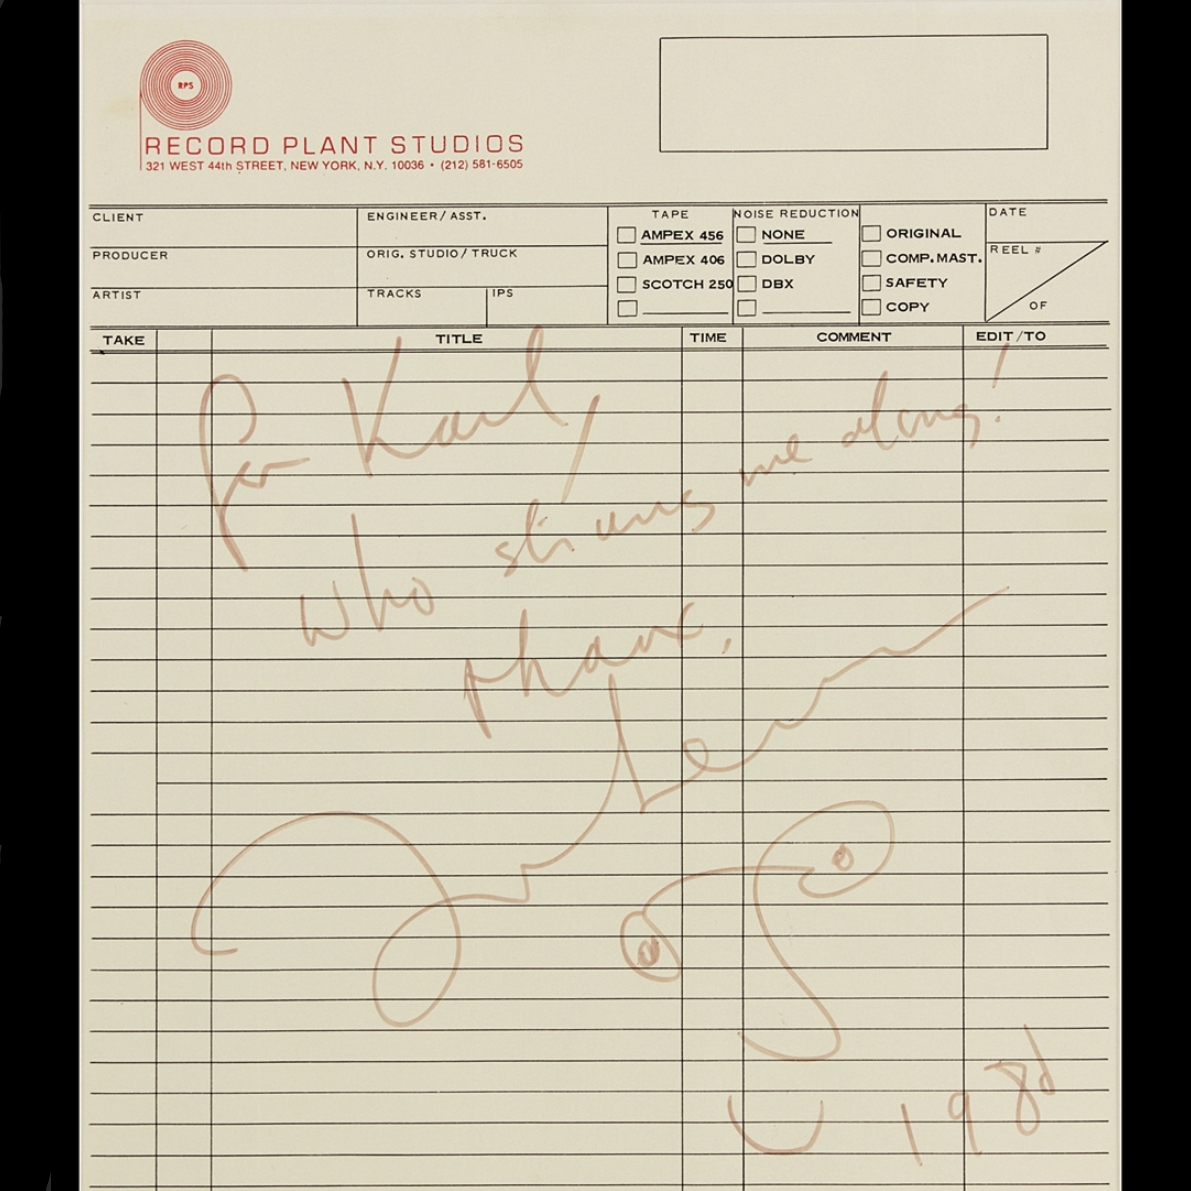 RPS
RECORD PLANT STUDIOS
321 WEST 44th STREET, NEW YORK, N.Y. 10036 • (212) 581-6505
CLIENT
ENGINEER/ASST.
TAPE
NOISE REDUCTION
DATE
AMPEX 456
NONE
ORIGINAL
PRODUCER
ORIG. STUDIO/TRUCK
AMPEX 406
DOLBY
COMP. MAST.
REEL #
SCOTCH 250
DBX
SAFETY
ARTIST
TRACKS
IPS
COPY
OF
TAKE
TITLE
TIME
COMMENT
EDIT/TO
for Karl,
who strung me along!
thanx,
John Lennon
1980